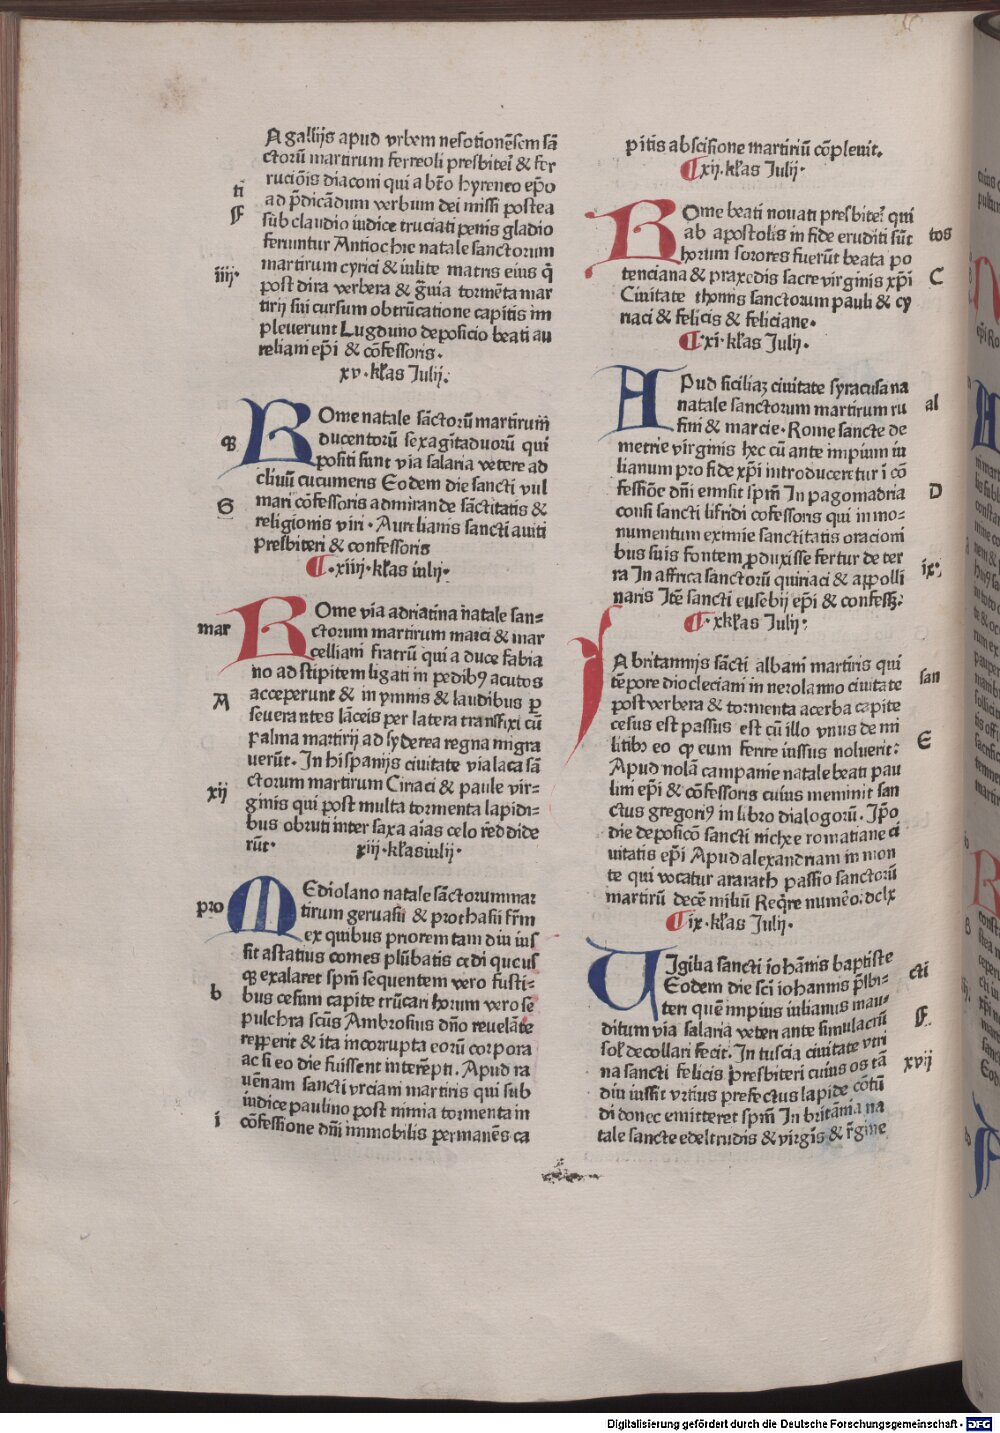 A gallijs apud vrbem nesotionēsem sā
ctorū martirum ferreoli presbiteri & fer
rucionis diaconi qui a bto hyreneo epo
ti
ad pdicādum verbum dei missi postea
F
sub claudio iudice truciati penis gladio
feriuntur Antiochie natale sanctorum
martirum cyrici & iulite matris eius q
iiij·
post dira verbera & guia tormēta mar
tirij sui cursum obtrūcatione capitis im
pleuerunt Lugduno deposicio beati au
reliani epi & cōfessoris·
xv·kłas Julij·
Rome natale sāctorū martirum
qz
ducentorū sexagitaduorū qui
positi sunt via salaria vetere ad
cliuū cucumeris Eodem die sancti vul
S
mari cōfessoris admirande sāctitatis &
religionis viri·Aurelianis sancti auiti
presbiteri & confessoris
·xiiij·kłas iulij·
Rome via adriatina natale san=
mar
ctorum martirum marci & mar
celliani fratrū qui a duce fabia
no ad stipitem ligati in pedibꝰ acutos
A
acceperunt & in ymnis & laudibus p
seuerantes lāceis per latera transfixi cū
palma martirij ad syderea regna migra
uerūt·In hispanijs ciuitate vialaca sā
ctorum martirum Ciriaci & paule vir=
xij
ginis qui post multa tormenta lapidi=
bus obruti inter saxa aīas celo reddide
rūt·
xiij·kłas iulij·
Mediolano natale sāctorum mar
pro
tirum geruasii & prothasii frm
ex quibus priorem tam diu ius
sit astatius comes plūbatis cedi qucus
qz exalaret spm sequentem vero fusti=
b
bus cesum capite trūcari horum vero se
pulchra scūs Ambrosius dno reuelāte
repperit & ita incorrupta eorū corpora
ac si eo die fuissent interēpti·Apud ra
uēnam sancti vrciani martiris qui sub
iudice paulino post nimia tormenta in
i
cōfessione dni immobilis permanēs ca
pitis abscisione martiriū cōpleuit·
xij·kłas Julij·
Rome beati nouati presbiteri qui
ab apostolis in fide eruditi sūt
tos
horum sorores fuerūt beata po
tenciana & praxedis sacre virginis xpi
C
Ciuitate thomis sanctorum pauli & cy
riaci & felicis & feliciane·
·xi·kłas Julij·
Apud siciliaz ciuitate syracusana
natale sanctorum martirum ru
al
fini & marcie·Rome sancte de
metrie virginis hec cū ante impium iu
lianum pro fide xpi introduceretur ī cō
fessiōe dni emisit spm In pago madria
D
consi sancti lifridi cofessoris qui in mo=
numentum eximie sanctitatis oracioni
bus suis fontem produxisse fertur de ter
ix·
ra In affrica sanctorū quiriaci & appolli
naris Itē sancti eusebij epi & confess·
·xkłas Julij·
In britannijs sācti albani martiris qui
tēpore diocleciani in nerolanno ciuitate
san
post verbera & tormenta acerba capite
cesus est passus est cū illo vnus de mi
litibꝰ eo qp eum ferire iussus noluerit:
E
Apud nolā campanie natale beati pau
lini epi & cōfessoris cuius meminit san
ctus gregoriꝰ in libro dialogorū·Ipo
die deposicō sancti nichee romatiane ci
uitatis epi Apud alexandriam in mon
te qui vocatur ararath passio sanctorū
martirū decē miliū Reqre numeo: dclx
ix·kłas Julij·
Uigilia sancti iohānis baptiste
Eodem die sci iohannis pslbi=
cti
teri quē impius iulianus mau=
ditum via salaria veteri ante simulacrū
F
sol decollari fecit·In tuscia ciuitate vtri
na sancti felicis presbiteri cuius os tā
xvij
diu iussit vrtius prefectus lapide cōtū
di donec emitteret spm In britānia na
tale sancte edeltrudis & virgis & rgine
Digitalisierung gefördert durch die Deutsche Forschungsgemeinschaft - DFG